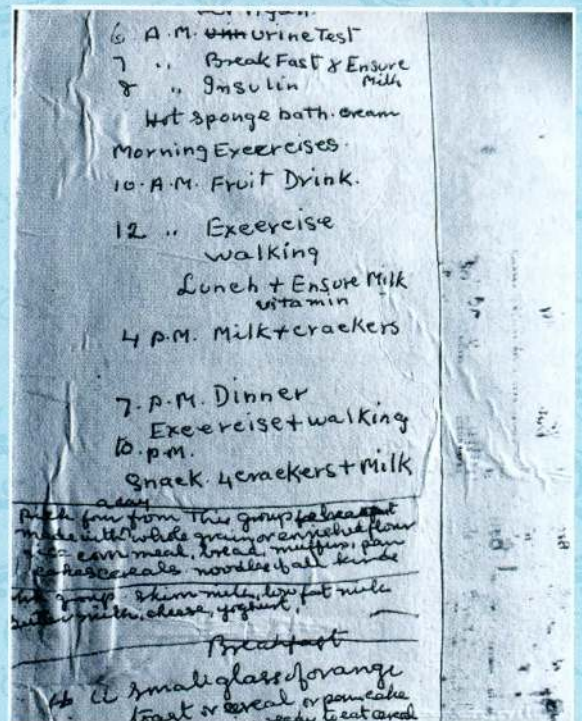 6 A.M. Urine Test
7 " BreakFast & Ensure
8 " Insulin Milk
Hot sponge bath. cream
Morning Exeercises.
10. A.M. Fruit Drink.
12 " Exeercise
walking
Lunch + Ensure Milk
vitamin
4 P.M. Milk + crackers
7. P.M. Dinner
Exeercise + walking
10. p.m.
Snack. 4 crackers + Milk
a day
Pick four from This group
made with whole grain or enriched flour
corn meal, bread, muffins, pan
cakes cereals noodles of all kinds
group skim milk, low fat milk
butter milk, cheese, yoghurt,
Breakfast
a small glass of orange
toast or cereal or pancake
ready to eat cereal